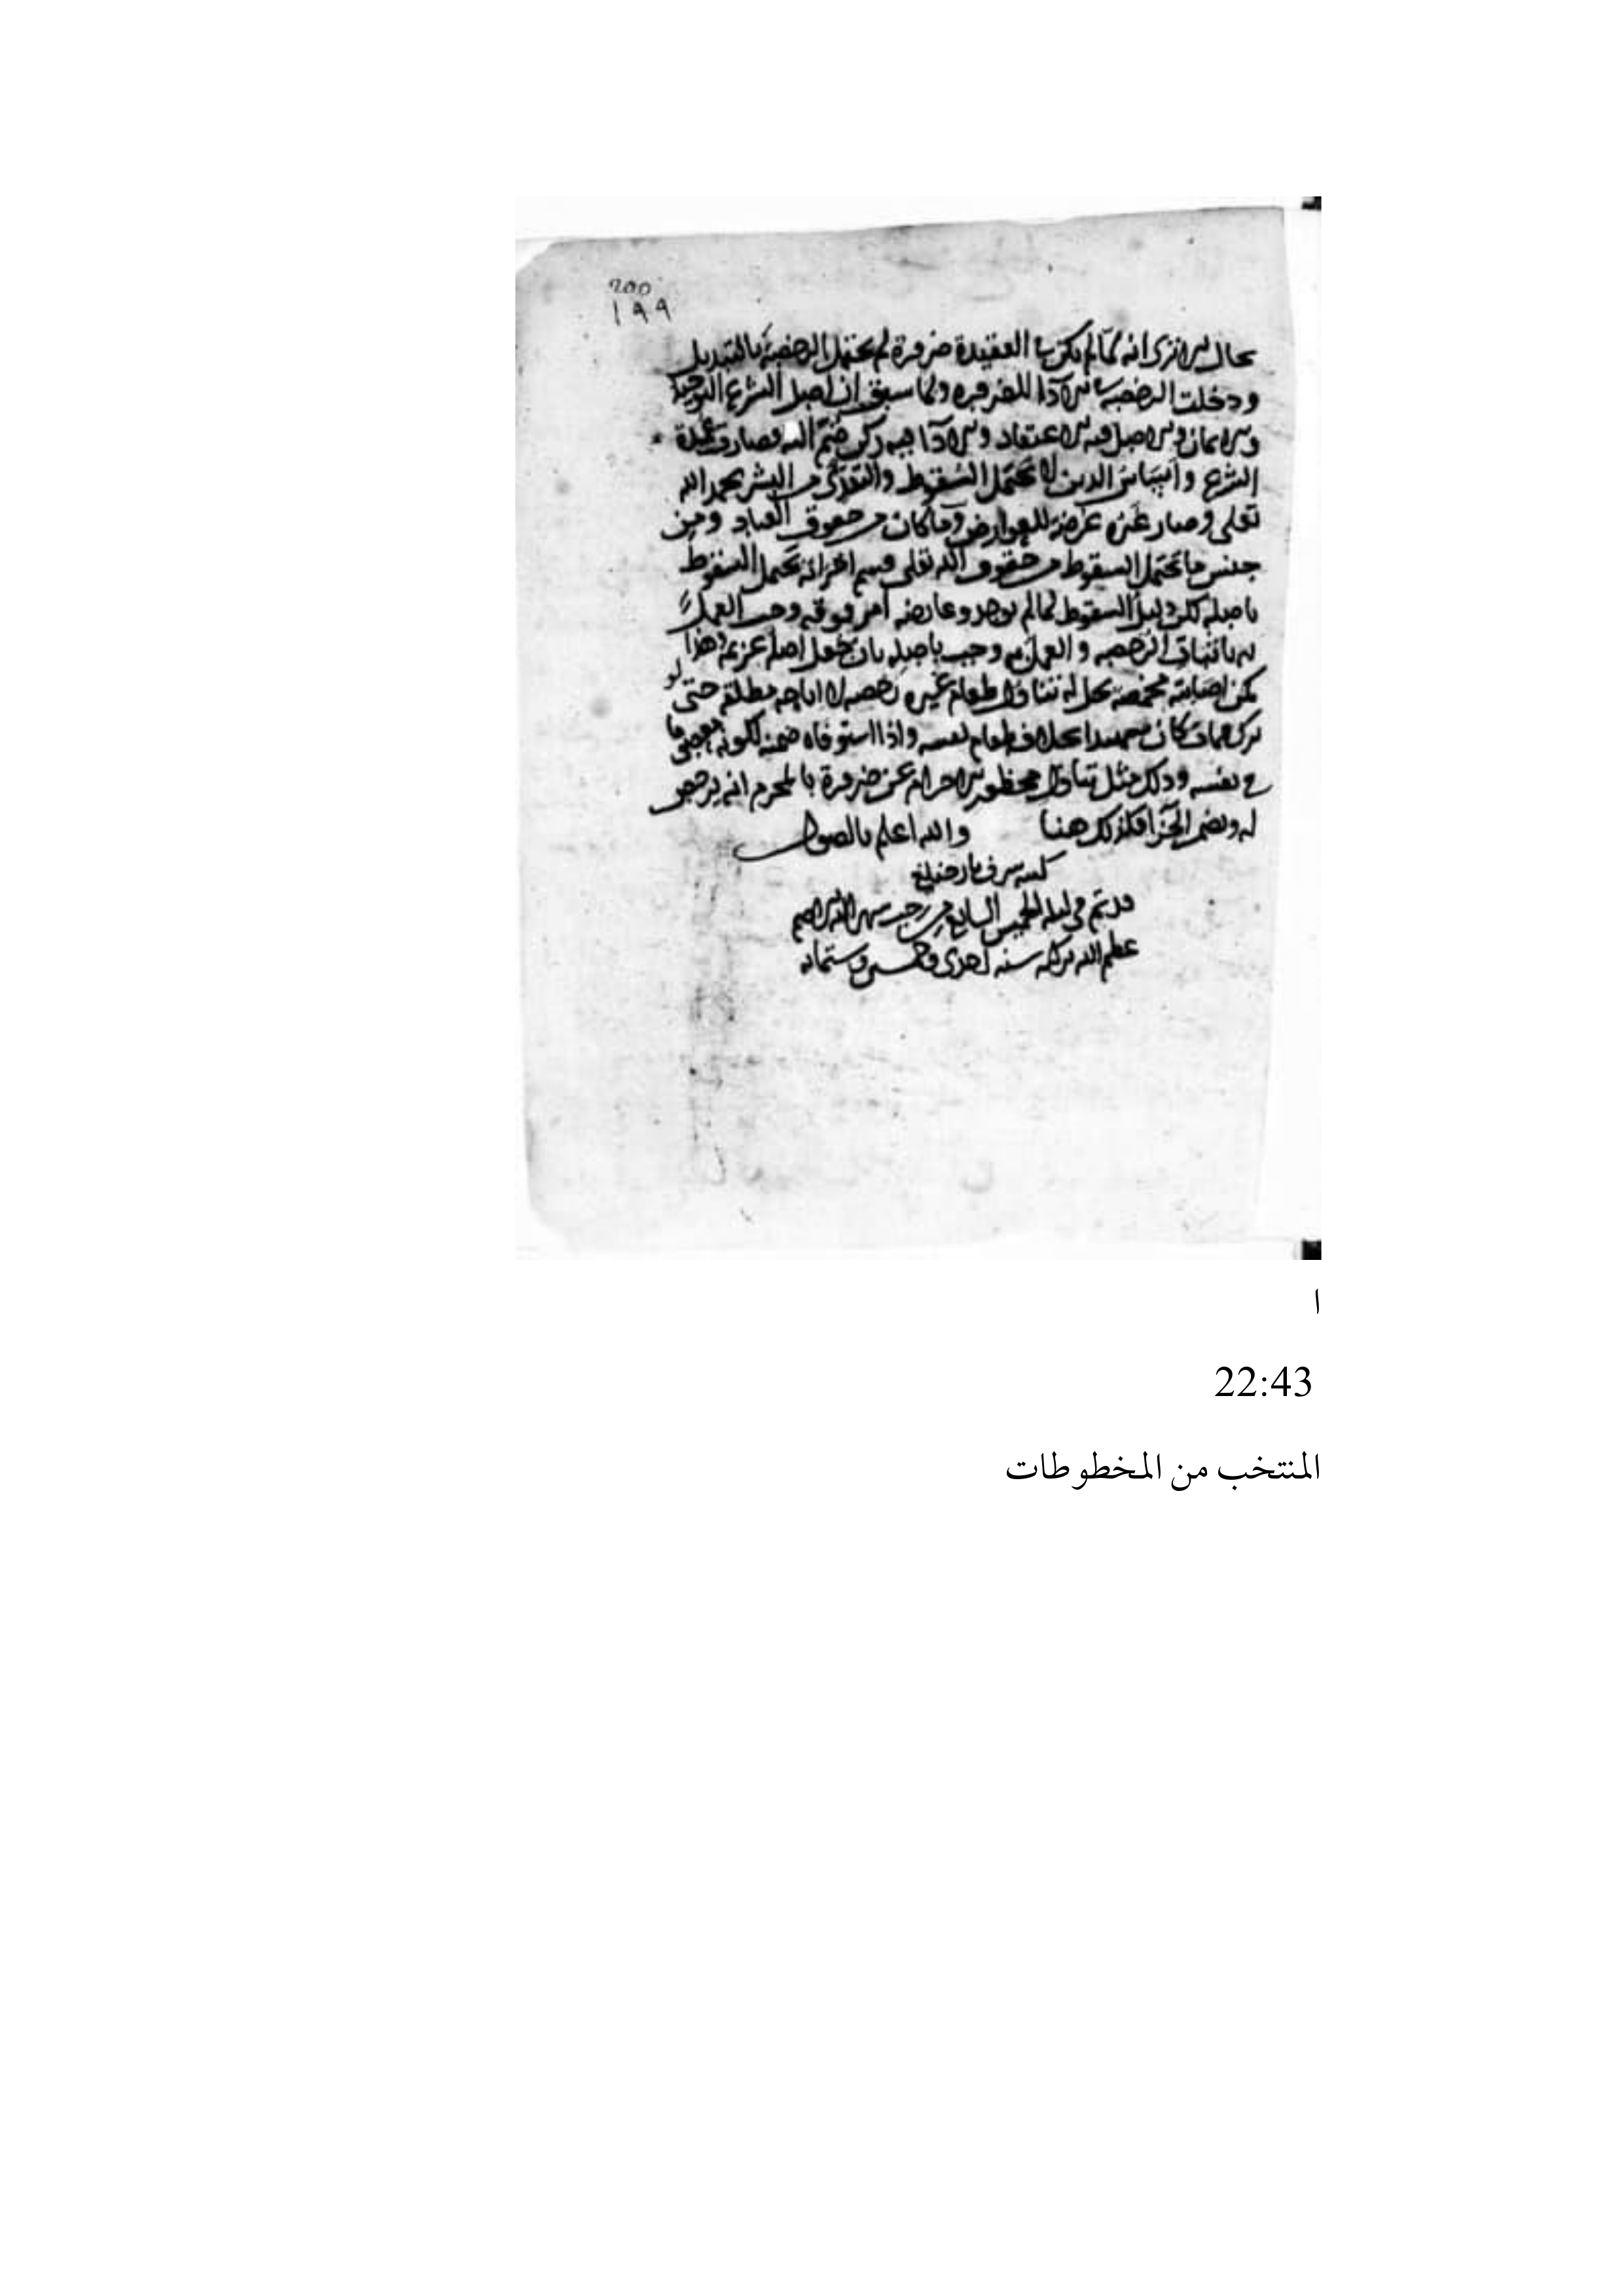 200
١٩٩
بحال الا ترى انه لما لم يكن في العقيدة ضرورة لم يحتمل الرخصة بالتبديل
ودخلت الرخصة في الادا للضرورة ولما سبق ان اصل الشرع التوحيد
والايمان والاصل فيه الاعتقاد والادا فيه ركن ضم اليه فصار عمدة
الشرع واساس الدين لا يحتمل السقوط والتعدي من البشر بحمد الله
تعلى وصار غيره عرضة للعوارض وما كان من حقوق العباد ومن
جنس ما يحتمل السقوط من حقوق الله تعلى قسم اخر انه يحتمل السقوط
باصله لكن دليل السقوط لما لم يوجد وعارضه امر فوقه وجب العمل
به باثبات الرخصة والعمل به وجب باصله بان جعل اصله عزيمة وهذا
كمن اصابته مخمصة حل له تناول طعام غيره رخصة لا اباحة مطلقة حتى لو
ترك فمات كان شهيدا بخلاف طعام نفسه واذا استوفاه ضمنه لكونه معصوما
في نفسه وذلك مثل تناول محظور الاحرام عن ضرورة بالمحرم انه يرخص
له ويضمن الجزا فكذلك هنا والله اعلم بالصواب
كتبه
قد تم في ليلة الخميس السابع من رجب شهر الله الاصم
عظم الله بركته سنة احدى وستمائة
ا
22:43
المنتخب من المخطوطات